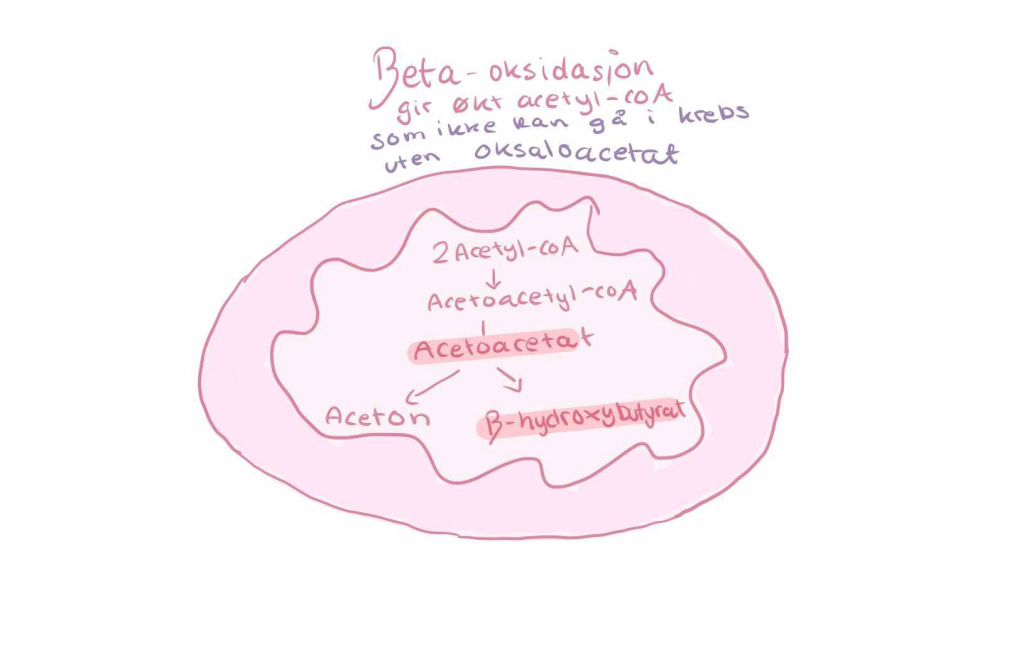 Beta-oksidasjon
gir økt acetyl-coA
som ikke kan gå i krebs
uten oksaloacetat
2 Acetyl-coA
Acetoacetyl-coA
Acetoacetat
Aceton
β-hydroxybutyrat